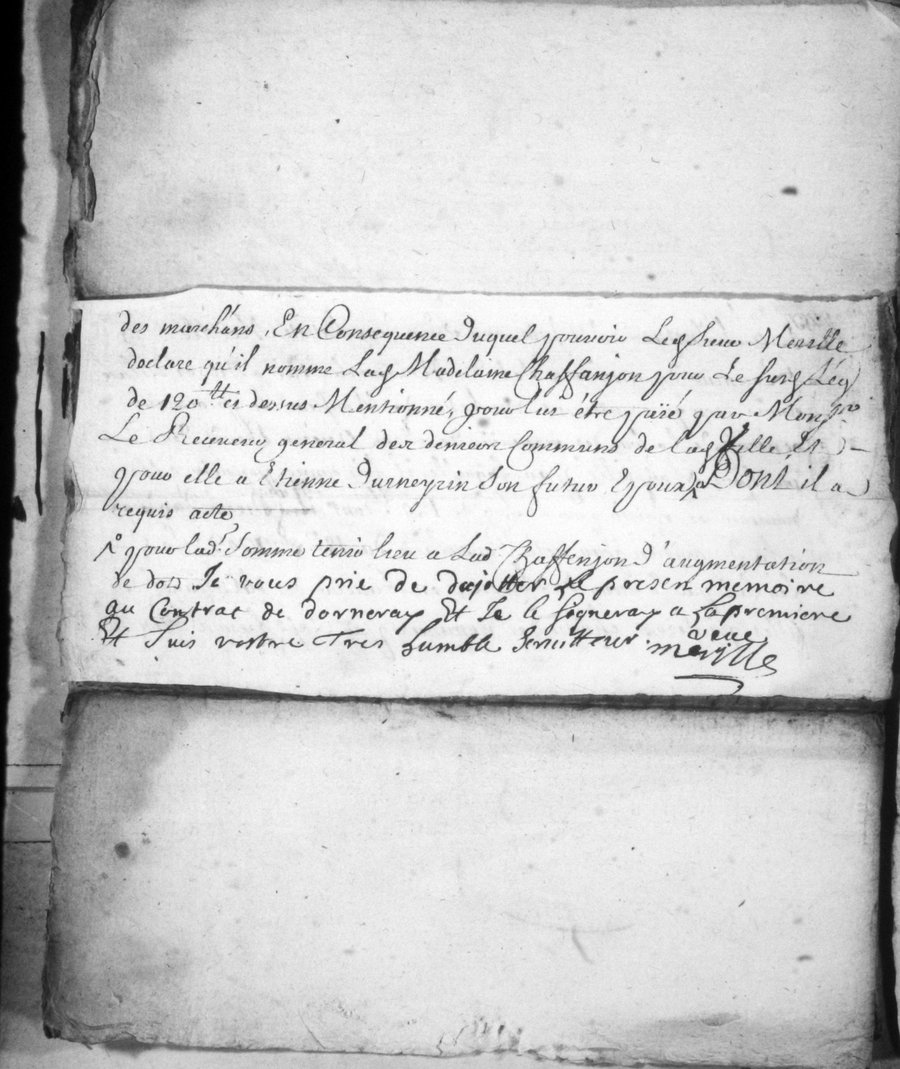 des marchans, En Consequence duquel pouvoir Led Sieur Merille
declare qu'il nomme Lad Madelaine Chaffanjon pour Le susd Leg
de 120 tt cy dessus Mentionné, pour lui étre païé par Mons.
Le Receveur general des deniers Communs de lad Ville Et
pour elle a Etienne Durneyrin Son futur Epoux, Dont il a
requis acte
pour lad. Somme tenir lieu a Lad Chaffenjon d'augmentation
de dot. Je vous prie de dajotter Le presen memoire
au Contrac de dorneray Et Je le signeray a La premiere
veue
Et Suis vostre Tres humble serviteur merille